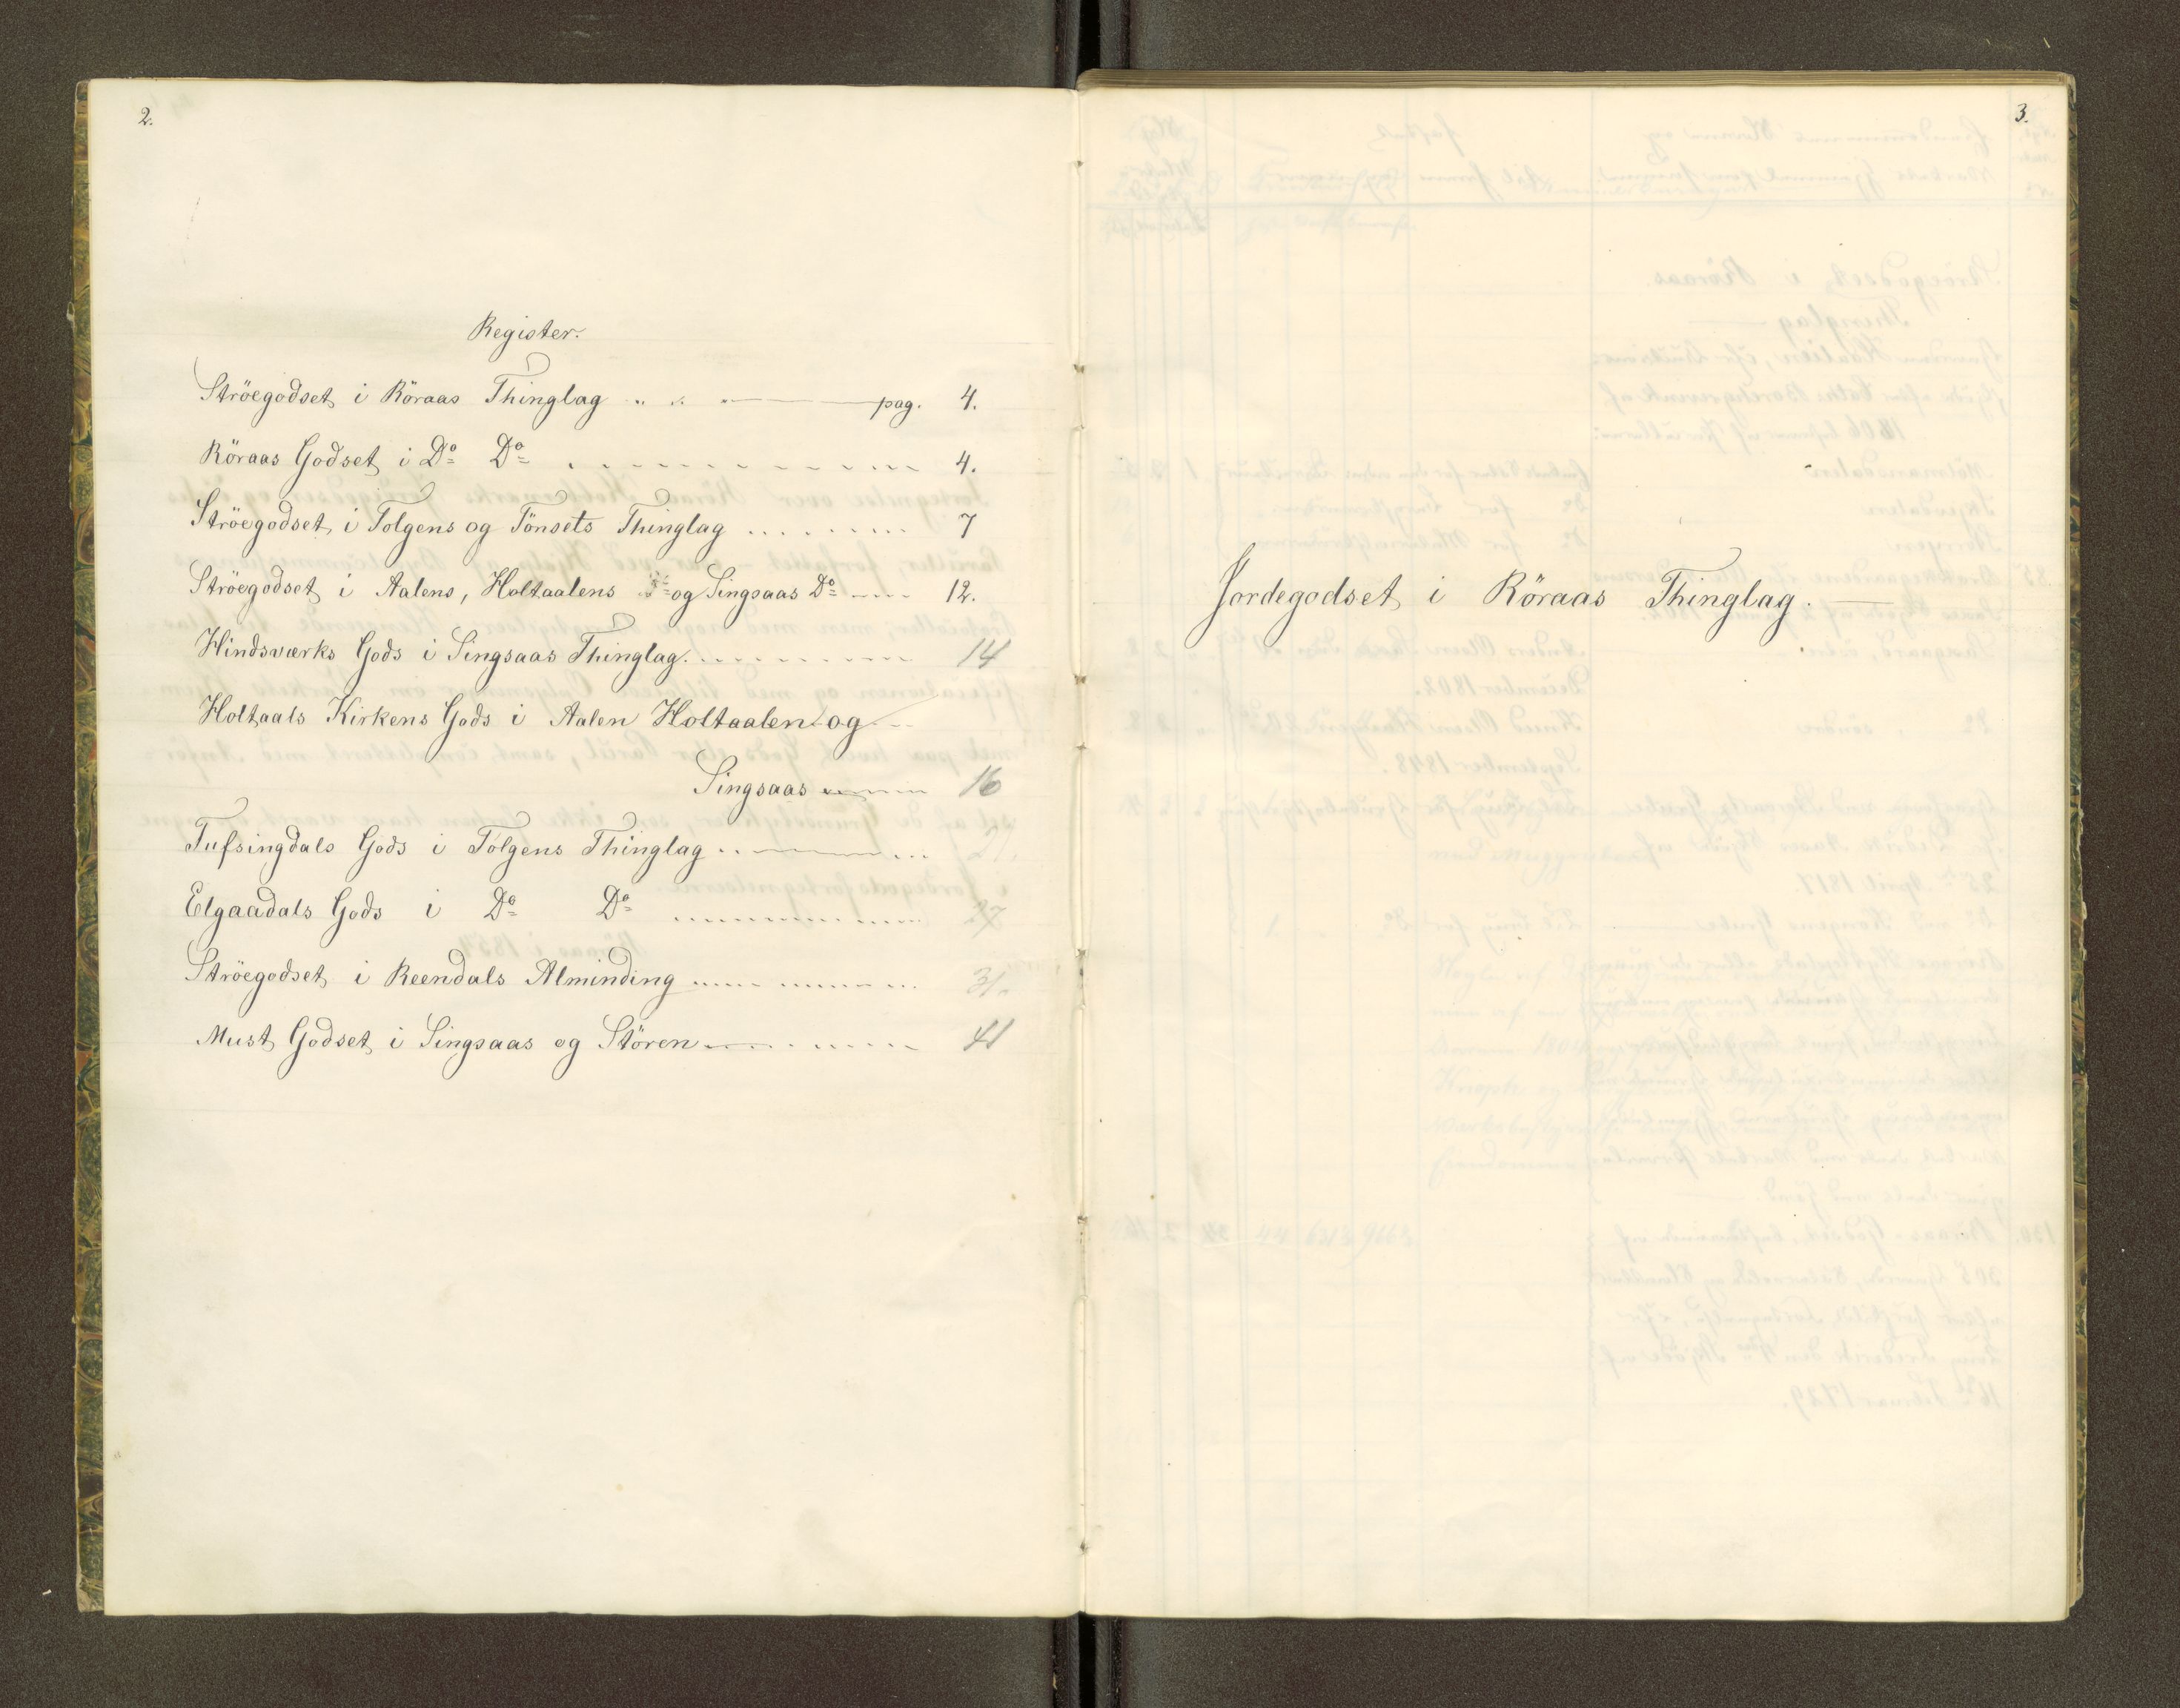 2.
Register.
Ströegodset i Röraas Thinglag pag. 4.
Röraas Godset i Do Do 4.
Ströegodset i Tolgens og Tönsets Thinglag 7
Ströegodset i Aalens, Holtaalens og Singsaas Do 12.
Hindsværks Gods i Singsaas Thinglag 14
Holtaals Kirkens Gods i Aalen Holtaalen og
Singsaas 16
Tufsingdals Gods i Tolgens Thinglag 21.
Elgaadals Gods i Do Do 27
Ströegodset i Reendals Alminding 31.
Must Godset i Singsaas og Stören 41
3.
Jordegodset i Röraas Thinglag.